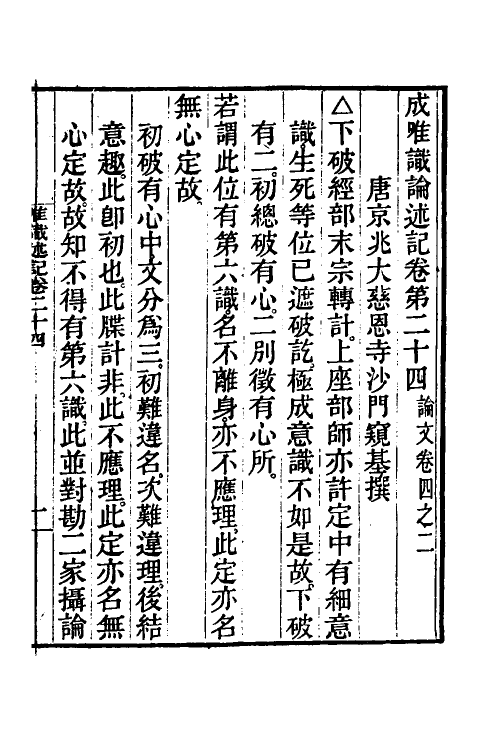 成唯識論述記卷第二十四 論文卷四之二
唐京兆大慈恩寺沙門窺基撰
△下破經部末宗轉計。上座部師亦許定中有細意
識。生死等位已遮破訖。極成意識不如是故。下破
有二。初總破有心。二別徵有心所。
若謂此位有第六識。名不離身。亦不應理。此定亦名
無心定故。
初破有心中。文分爲三。初難違名。次難違理。後結
意趣。此卽初也。此牒計非。此不應理。此定亦名無
心定故。故知不得有第六識。此並對勘二家攝論
唯識述記卷二十四
一